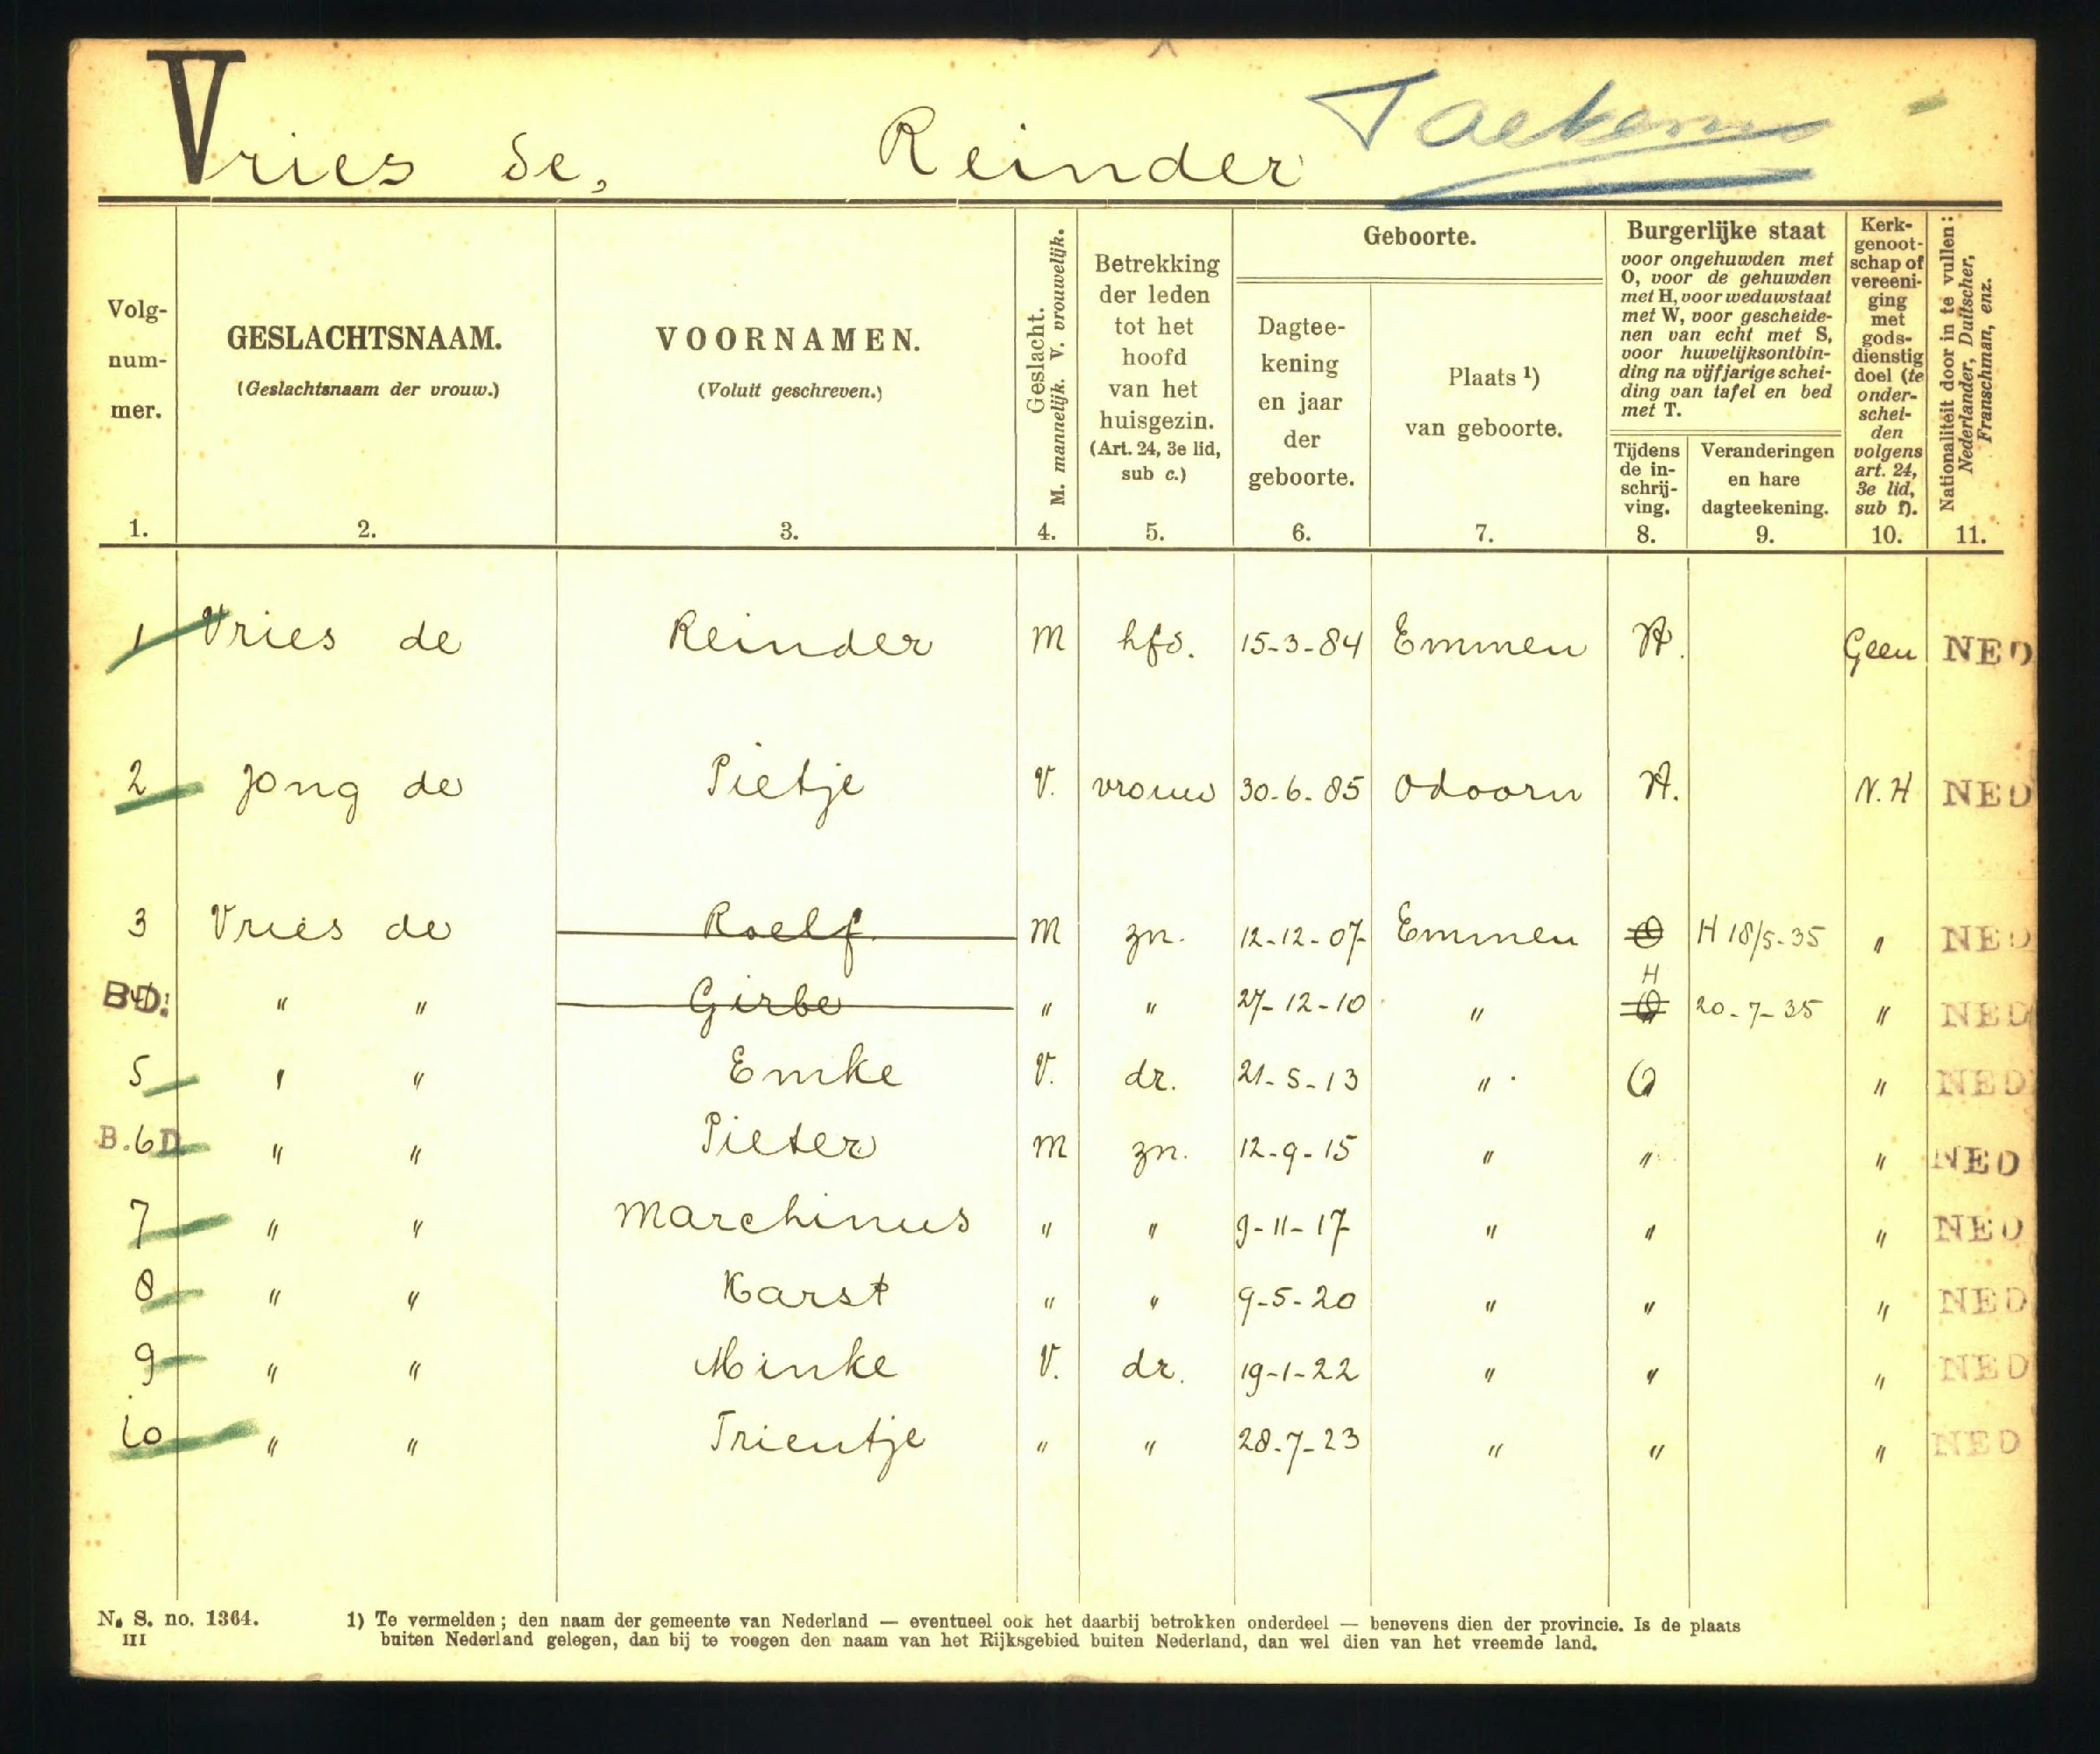 Vries de, Reinder
Volg-
num-
mer.
1.
GESLACHTSNAAM.
(Geslachtsnaam der vrouw.)
2.
VOORNAMEN.
(Voluit geschreven.)
3.
Geslacht.
M. mannelijk. V. vrouwelijk.
4.
Betrekking
der leden
tot het
hoofd
van het
huisgezin.
(Art. 24, 3e lid,
sub c.)
5.
Geboorte.
Dagtee-
kening
en jaar
der
geboorte.
6.
Plaats ¹)
van geboorte.
7.
Burgerlijke staat
voor ongehuwden met
O, voor de gehuwden
met H, voor weduwstaat
met W, voor gescheide-
nen van echt met S,
voor huwelijksontbin-
ding na vijfjarige schei-
ding van tafel en bed
met T.
Tijdens
de in-
schrij-
ving.
8.
Veranderingen
en hare
dagteekening.
9.
Kerk-
genoot-
schap of
vereeni-
ging
met
gods-
dienstig
doel (te
onder-
schei-
den
volgens
art. 24,
3e lid,
sub f).
10.
Nationaliteit door in te vullen:
Nederlander, Duitscher,
Franschman, enz.
11.
1 Vries de Reinder M hfd. 15-3-84 Emmen H. Geen NED
2 Jong de Pietje V. vrouw 30-6-85 Odoorn H. N.H NED
3 Vries de Roelf M zn. 12-12-07 Emmen O H 18/5-35 " NED
B.D. " " Girbe " " 27-12-10 " O H 20-7-35 " NED
5 " " Emke V. dr. 21-5-13 " O " NED
B.6D " " Pieter M zn. 12-9-15 " " " NED
7 " " Marchinus " " 9-11-17 " " " NED
8 " " Karst " " 9-5-20 " " " NED
9 " " Minke V. dr. 19-1-22 " " " NED
10 " " Trientje " " 28-7-23 " " " NED
N. S. no. 1364.
III
1) Te vermelden; den naam der gemeente van Nederland — eventueel ook het daarbij betrokken onderdeel — benevens dien der provincie. Is de plaats
buiten Nederland gelegen, dan bij te voegen den naam van het Rijksgebied buiten Nederland, dan wel dien van het vreemde land.